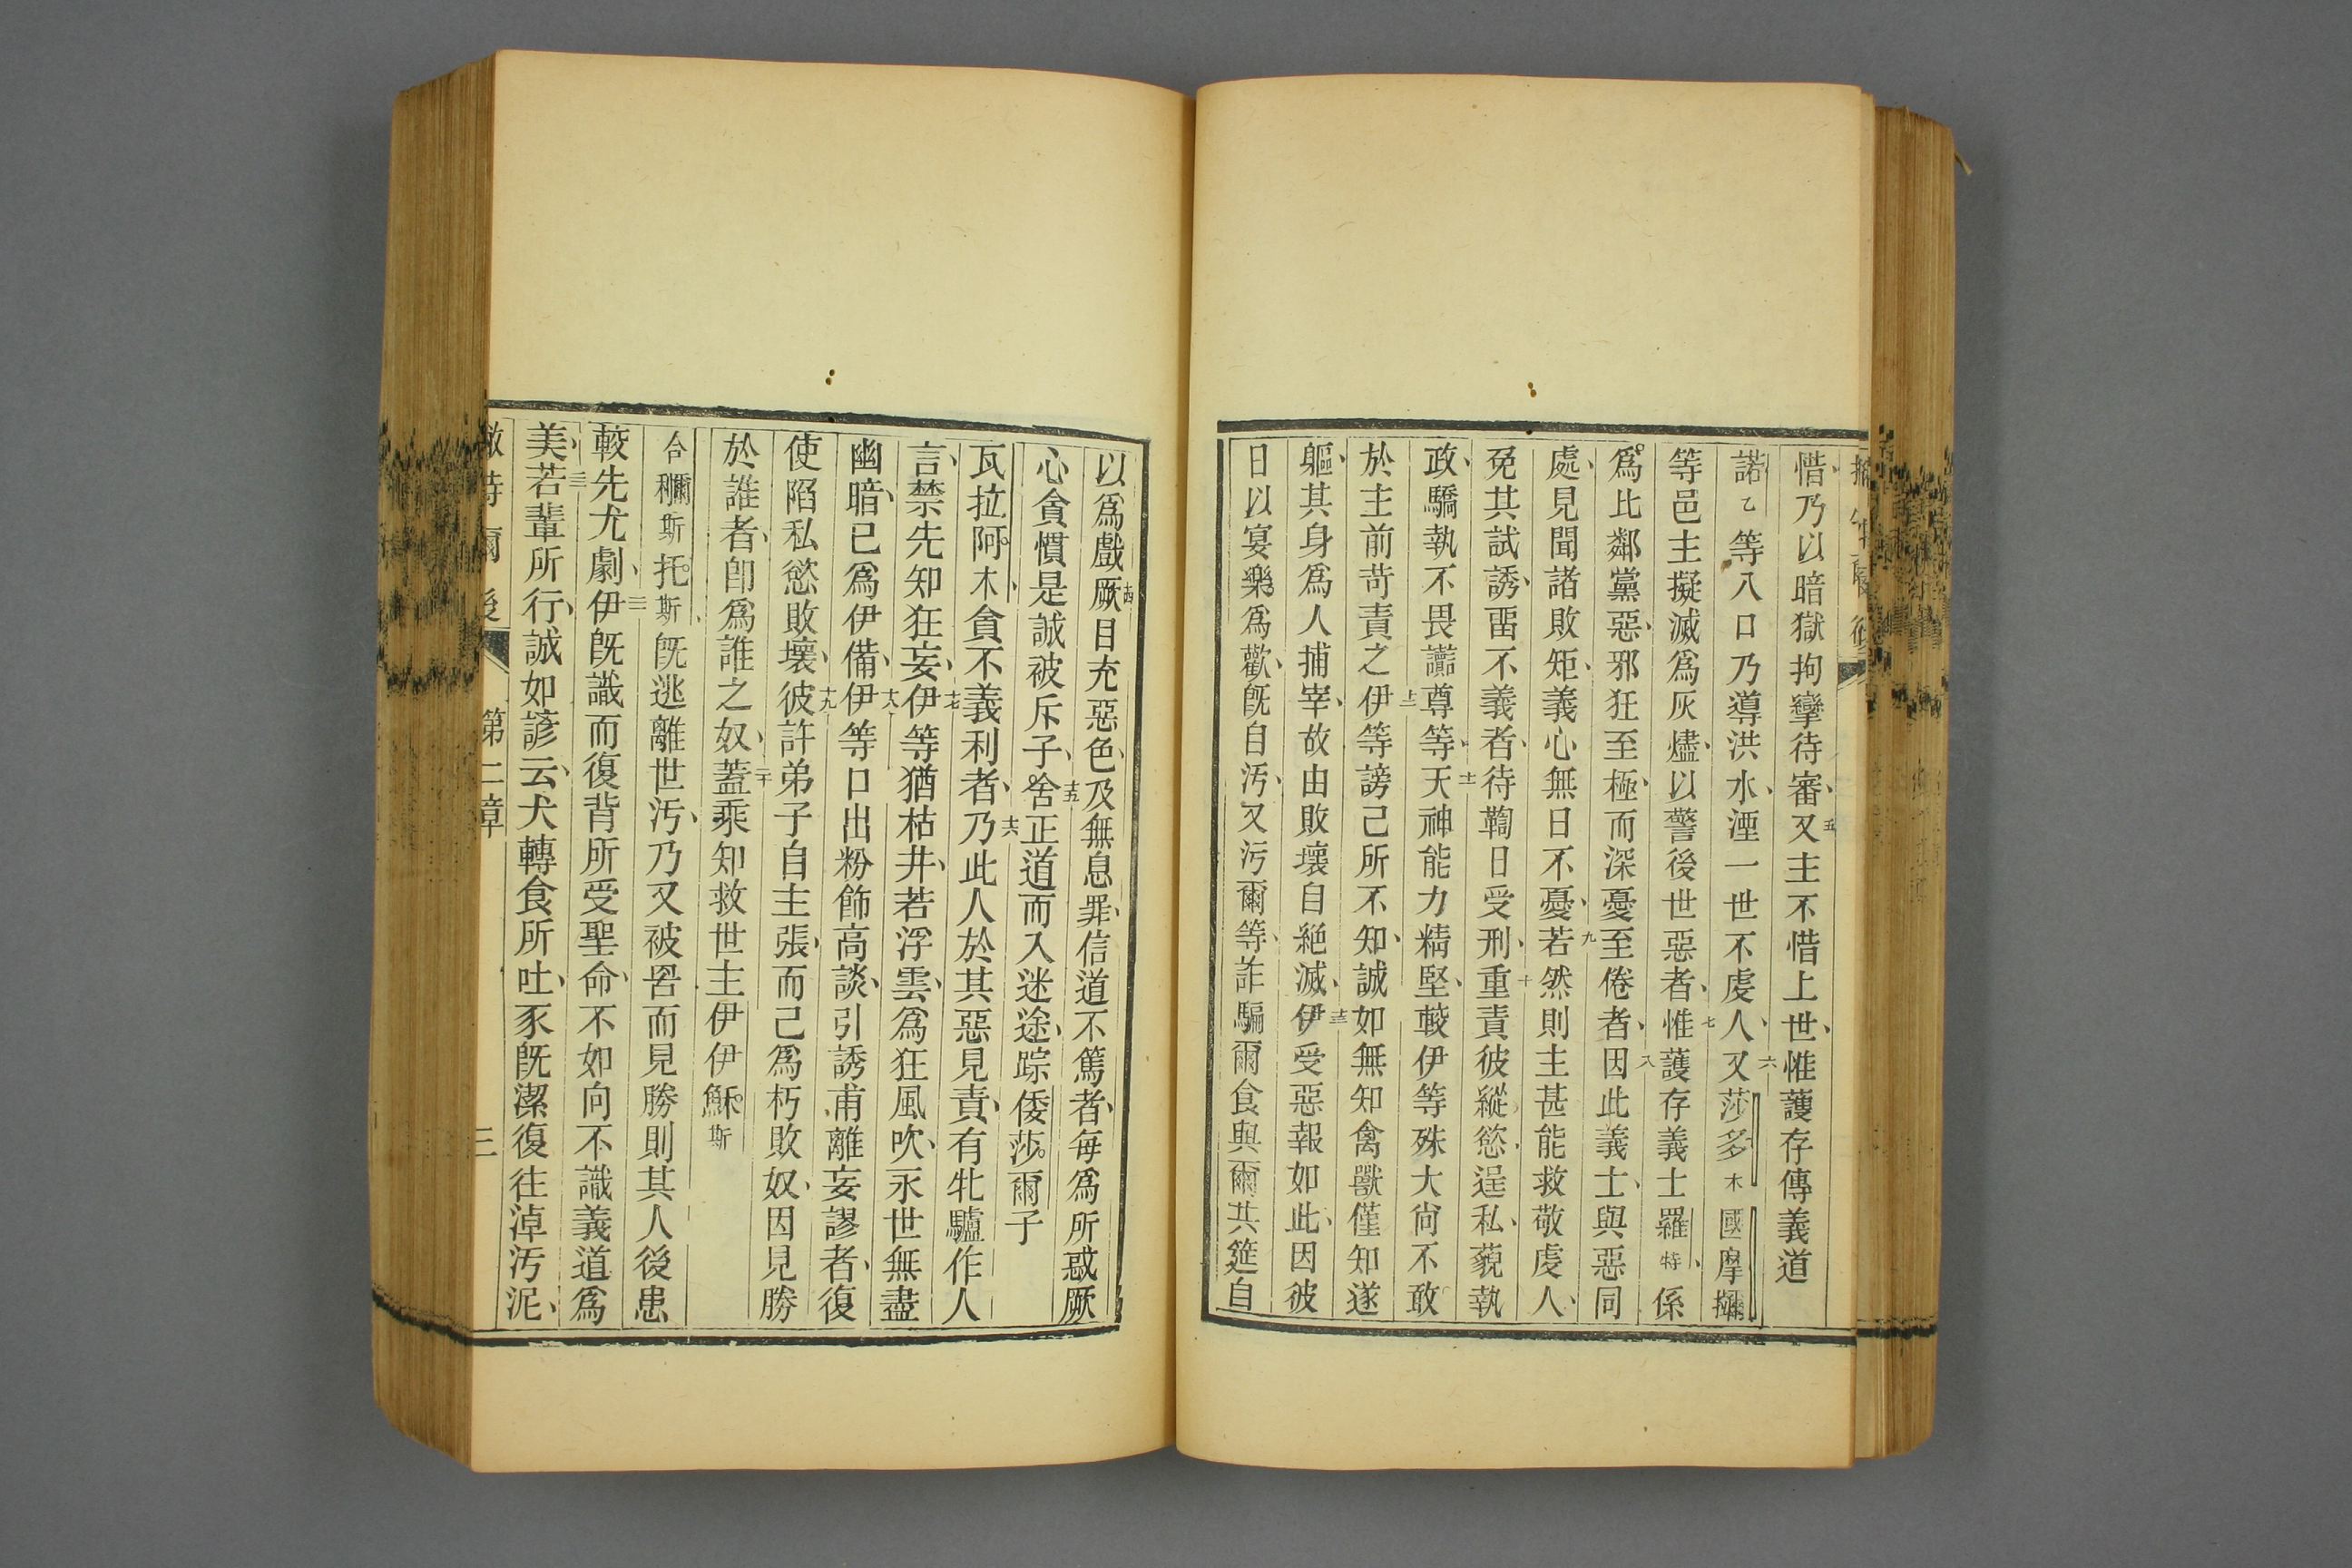 惜乃以暗獄拘攣待審又五主不惜上世惟六護存傳義道
諾乙等八口乃導洪水湮一世不虔人又莎多木國摩摛爾
等邑主擬滅爲灰燼以警後世惡者惟七護存義士羅特係
爲比鄰黨惡邪狂至極而深憂至倦者因八此義士與惡同
處見聞諸敗矩義心無日不憂若九然則主甚能救敬虔人
免其試誘畱不義者待鞫日受刑重十責彼縱慾逞私藐執
政驕執不畏讟尊等天十一神能力精堅較伊等殊大尙不敢
於主前苛責之伊十二等謗己所不知誠如無知禽獸僅知遂
軀其身爲人捕宰故由敗壞自絕滅伊十三受惡報如此因彼
日以宴樂爲歡旣自汚又污爾等詐騙爾食與爾共筵自
以爲戲厥十四目充惡色及無息罪信道不篤者每爲所惑厥
心貪慣是誠被斥子舍十五正道而入迷途踪倭莎爾子
瓦拉阿木貪不義利者乃十六此人於其惡見責有牝驢作人
言禁先知狂妄伊十七等猶枯井若浮雲爲狂風吹永世無盡
幽暗已爲伊備伊十八等口出粉飾高談引誘甫離妄謬者復
使陷私慾敗壞彼十九許弟子自主張而己爲朽敗奴因見勝
於誰者卽爲誰之奴蓋二十乘知救世主伊伊穌斯
合利爾斯托斯旣逃離世汚乃又被罟而見勝則其人後患
較先尤劇伊二十一旣識而復背所受聖命不如向不識義道爲
美若二十二輩所行誠如諺云犬轉食所吐豕旣潔復往淖汚泥
第二章 三